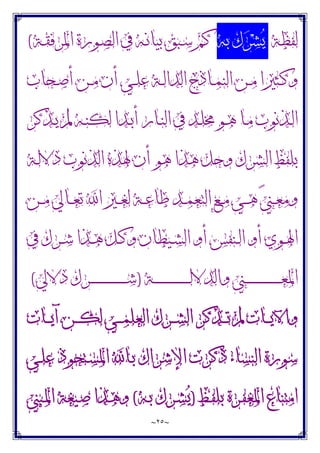 لفظة يُشرَك به كم سبق بيانه في الصورة المرفقة)
وكثيرا من النماذج الدالة على أن من أصحاب
الذنوب ما هو مخلد في النار أبدا لكنه لم يذكر
بلفظ الشرك وحل هذا هو أن لهذة الذنوب دلالة
ومعنىً هي مع التعمد طاعة لغير الله تعالى من
الهوى أو النفس أو الشيطان وكل هذا شرك في
المعنى والدلالة (شرك دلالي)
والايات لم تذكر الشرك العلمي لكن آيات
سورة النساء ذكرت الإشراك بالله المسبجود على
امتناع المغفرة بلفظ (يُشرك به) وهذا صيغة المبني
~٢٥~